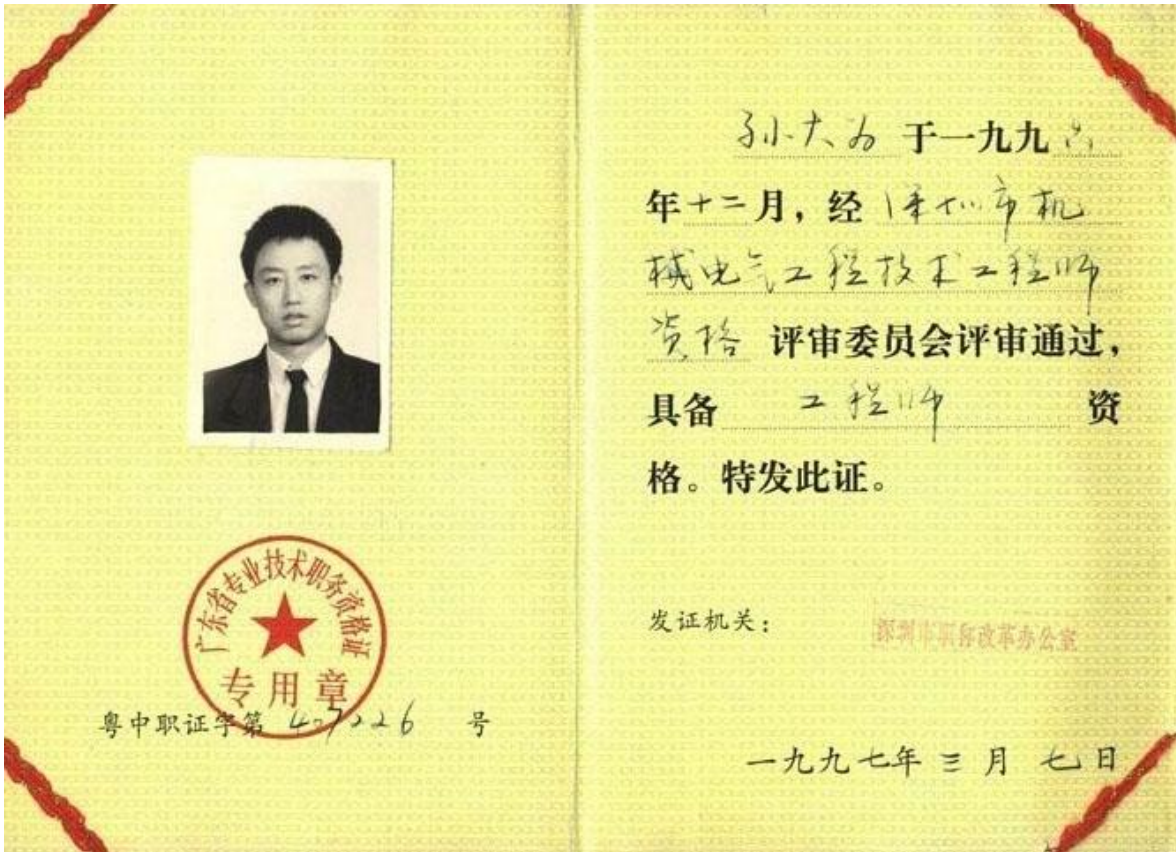 广东省专业技术职务资格证
专用章
粤中职证字第 407226 号
孙大为 于一九九六
年十二月，经 深圳市机
械电气工程技术工程师
资格 评审委员会评审通过，
具备 工程师 资
格。特发此证。
发证机关：
深圳市职称改革办公室
一九九七年 三 月 七 日